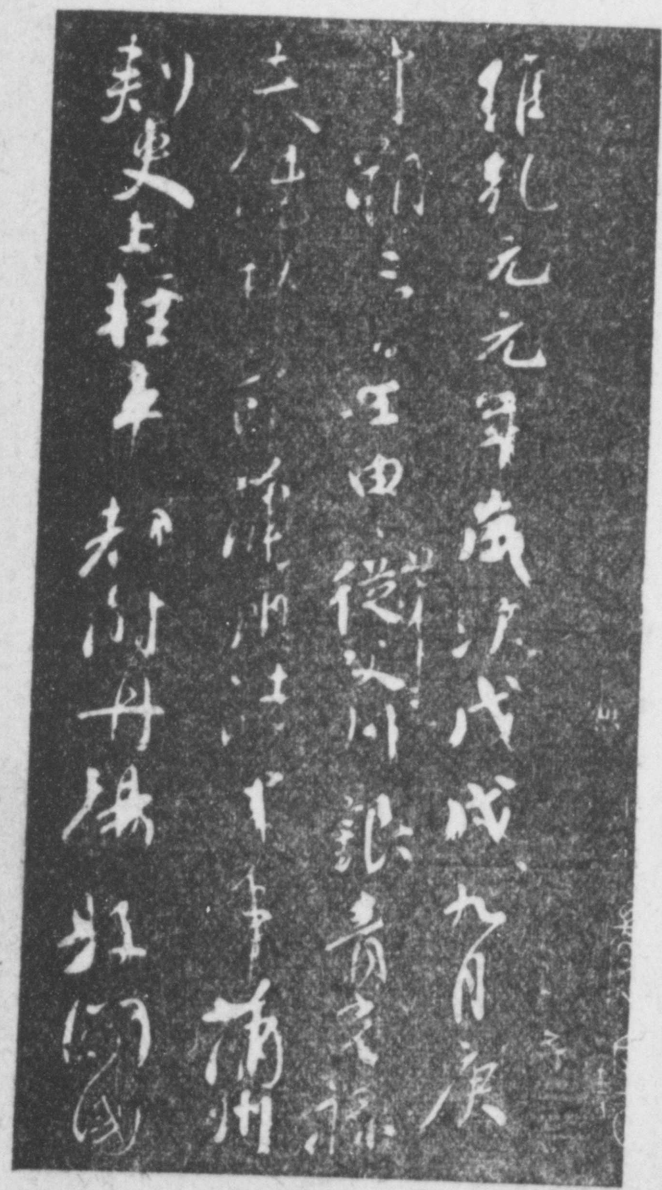 維乾元元年歲次戊戌九月庚
午朔三日壬申從父銀青光祿
夫使持節蒲州諸軍事蒲州
刺史上輕車都尉丹楊縣開國